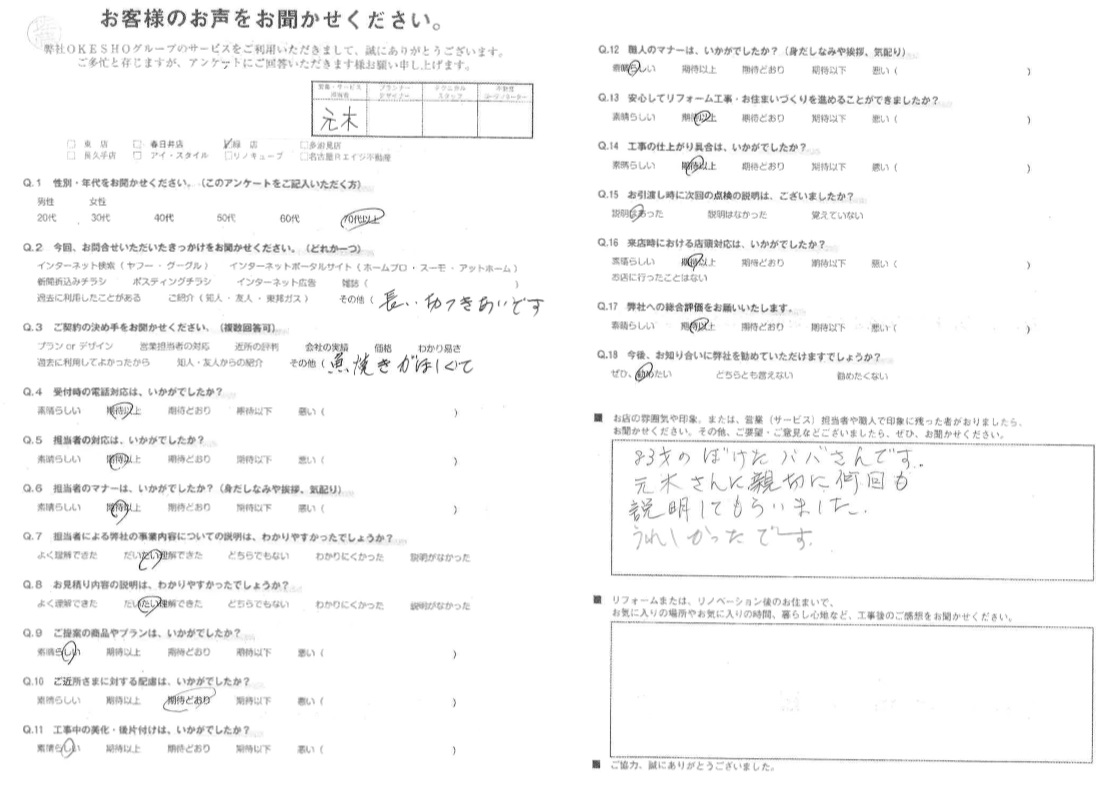 お客様のお声をお聞かせください。
弊社OKESHOグループのサービスをご利用いただきまして、誠にありがとうございます。
ご多忙と存じますが、アンケートにご回答いただきます様お願い申し上げます。
営業・サービス担当者 プランナーデザイナー テクニカルスタッフ 不動産コーディネーター
元木
東店 春日井店 緑店 多治見店
長久手店 アイ・スタイル リノキューブ 名古屋RエイジS不動産
Q.1 性別・年代をお聞かせください。（このアンケートをご記入いただく方）
男性 女性
20代 30代 40代 50代 60代 70代以上
Q.2 今回、お問合せいただいたきっかけをお聞かせください。（どれか一つ）
インターネット検索（ヤフー・グーグル） インターネットポータルサイト（ホームプロ・スーモ・アットホーム）
新聞折込みチラシ ポスティングチラシ インターネット広告 雑誌（ ）
過去に利用したことがある ご紹介（知人・友人・東邦ガス） その他（ 長い切つきあいです
Q.3 ご契約の決め手をお聞かせください。（複数回答可）
プラン or デザイン 営業担当者の対応 近所の評判 会社の実績 価格 わかり易さ
過去に利用してよかったから 知人・友人からの紹介 その他（ 魚焼きがほしくて
Q.4 受付時の電話対応は、いかがでしたか？
素晴らしい 期待以上 期待どおり 期待以下 悪い（ ）
Q.5 担当者の対応は、いかがでしたか？
素晴らしい 期待以上 期待どおり 期待以下 悪い（ ）
Q.6 担当者のマナーは、いかがでしたか？（身だしなみや挨拶、気配り）
素晴らしい 期待以上 期待どおり 期待以下 悪い（ ）
Q.7 担当者による弊社の事業内容についての説明は、わかりやすかったでしょうか？
よく理解できた だいたい理解できた どちらでもない わかりにくかった 説明がなかった
Q.8 お見積り内容の説明は、わかりやすかったでしょうか？
よく理解できた だいたい理解できた どちらでもない わかりにくかった 説明がなかった
Q.9 ご提案の商品やプランは、いかがでしたか？
素晴らしい 期待以上 期待どおり 期待以下 悪い（ ）
Q.10 ご近所さまに対する配慮は、いかがでしたか？
素晴らしい 期待以上 期待どおり 期待以下 悪い（ ）
Q.11 工事中の美化・後片付けは、いかがでしたか？
素晴らしい 期待以上 期待どおり 期待以下 悪い（ ）
Q.12 職人のマナーは、いかがでしたか？（身だしなみや挨拶、気配り）
素晴らしい 期待以上 期待どおり 期待以下 悪い（ ）
Q.13 安心してリフォーム工事・お住まいづくりを進めることができましたか？
素晴らしい 期待以上 期待どおり 期待以下 悪い（ ）
Q.14 工事の仕上がり具合は、いかがでしたか？
素晴らしい 期待以上 期待どおり 期待以下 悪い（ ）
Q.15 お引渡し時に次回の点検の説明は、ございましたか？
説明はあった 説明はなかった 覚えていない
Q.16 来店時における店頭対応は、いかがでしたか？
素晴らしい 期待以上 期待どおり 期待以下 悪い（ ）
お店に行ったことはない
Q.17 弊社への総合評価をお願いいたします。
素晴らしい 期待以上 期待どおり 期待以下 悪い（ ）
Q.18 今後、お知り合いに弊社を勧めていただけますでしょうか？
ぜひ、勧めたい どちらとも言えない 勧めたくない
■ お店の雰囲気や印象、または、営業（サービス）担当者や職人で印象に残った者がおりましたら、
お聞かせください。その他、ご要望・ご意見などございましたら、ぜひ、お聞かせください。
83才のぼけたババさんです。
元木さんに親切に何回も
説明してもらいました。
うれしかったです。
■ リフォームまたは、リノベーション後のお住まいで、
お気に入りの場所やお気に入りの時間、暮らし心地など、工事後のご感想をお聞かせください。
■ ご協力、誠にありがとうございました。